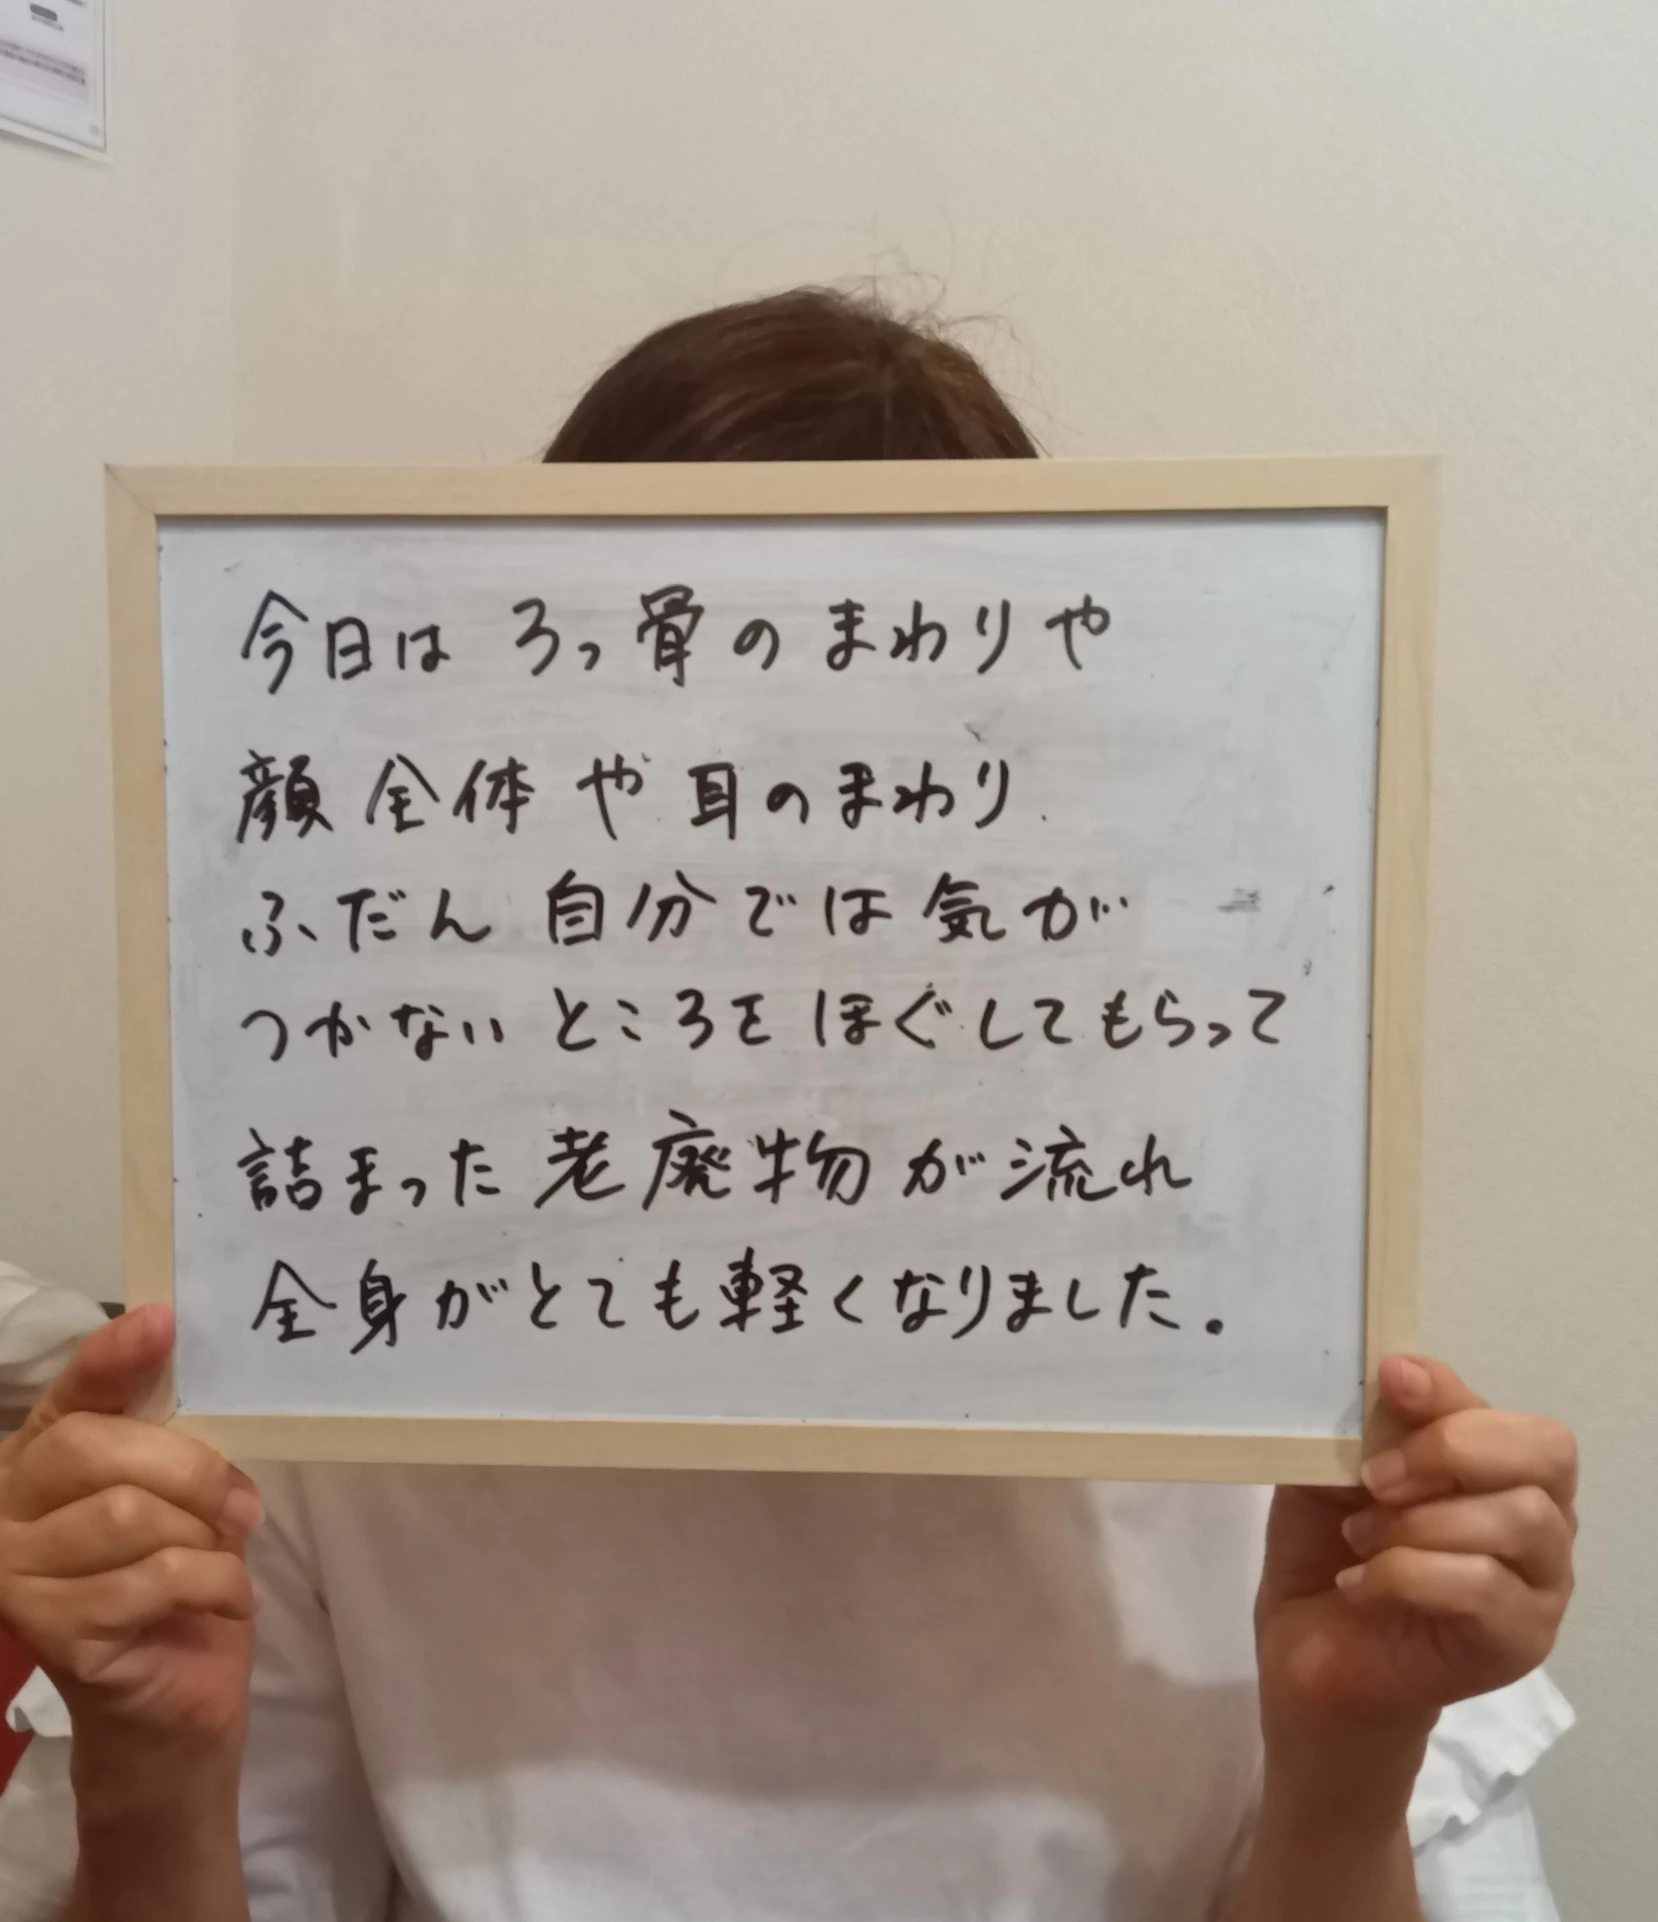 今日は ろっ骨のまわりや
顔全体や耳のまわり
ふだん自分では気が
つかないところをほぐしてもらって
詰まった老廃物が流れ
全身がとても軽くなりました。